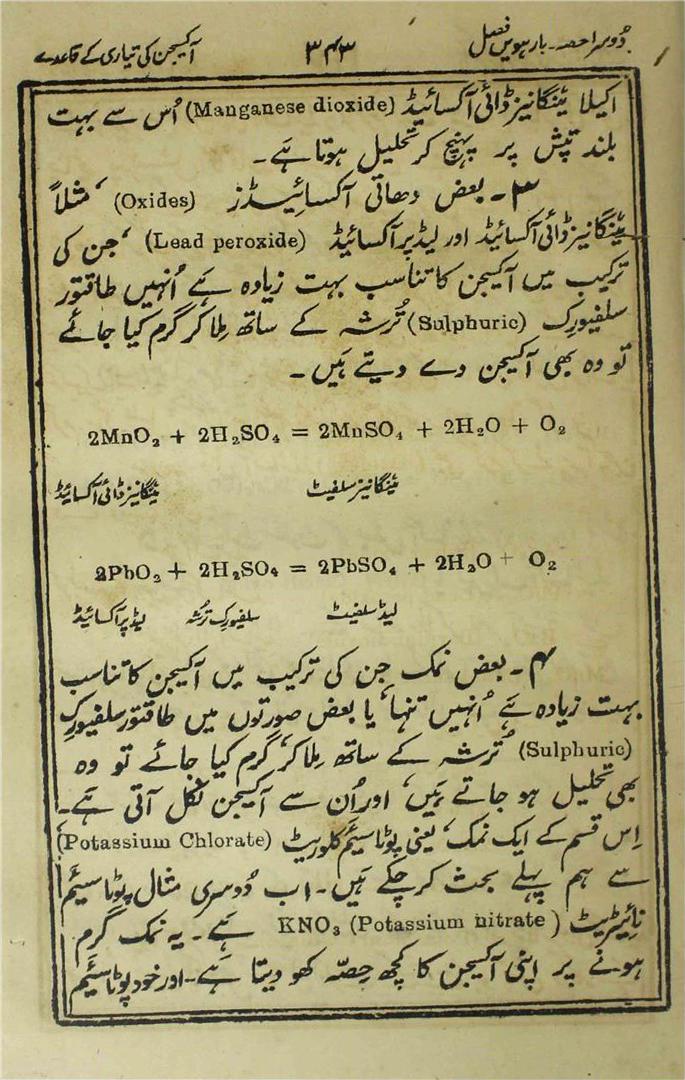 دُوسرا حصہ۔ بارہویں فصل ۳۴۳ آکسیجن کی تیاری کے قاعدے
اکیلا مَینگانیز ڈائی آکسائیڈ (Manganese dioxide) اُس سے بہت
بلند تپش پر پہنچ کر تحلیل ہوتا ہَے۔
۳۔ بعض دھاتی آکسائیڈز (Oxides) ‘ مثلاً
مَینگانیز ڈائی آکسائیڈ اور لیڈ پرآکسائیڈ (Lead peroxide) ‘ جن کی
ترکیب میں آکسیجن کا تناسب بہت زیادہ ہَے اُنہیں طاقتور
سلفیورک (Sulphuric) تُرشہ کے ساتھ مِلا کر گرم کیا جائے
تو وہ بھی آکسیجن دے دیتے ہَیں۔
2MnO₂ + 2H₂SO₄ = 2MnSO₄ + 2H₂O + O₂
مَینگانیز ڈائی آکسائیڈ مَینگانیز سلفیٹ
2PbO₂ + 2H₂SO₄ = 2PbSO₄ + 2H₂O + O₂
لیڈ پرآکسائیڈ سلفیورک تُرشہ لیڈ سلفیٹ
۴۔ بعض نمک جن کی ترکیب میں آکسیجن کا تناسب
بہت زیادہ ہَے اُنہیں تنہا‘ یا بعض صورتوں میں طاقتور سلفیورک
(Sulphuric) تُرشہ کے ساتھ مِلا کر‘ گرم کیا جائے تو وہ
بھی تحلیل ہو جاتے ہَیں‘ اور اُن سے آکسیجن نکل آتی ہَے۔
اِس قسم کے ایک نمک‘ یعنی پوٹاسیئم کلوریٹ (Potassium Chlorate)‘
سے ہم پہلے بحث کر چکے ہَیں۔ اب دُوسری مثال پوٹاسیئم
نائیٹریٹ KNO₃ (Potassium nitrate) ہَے۔ یہ نمک گرم
ہونے پر اپنی آکسیجن کا کچھ حِصّہ کھو دیتا ہَے۔ اور خود پوٹاسیئم